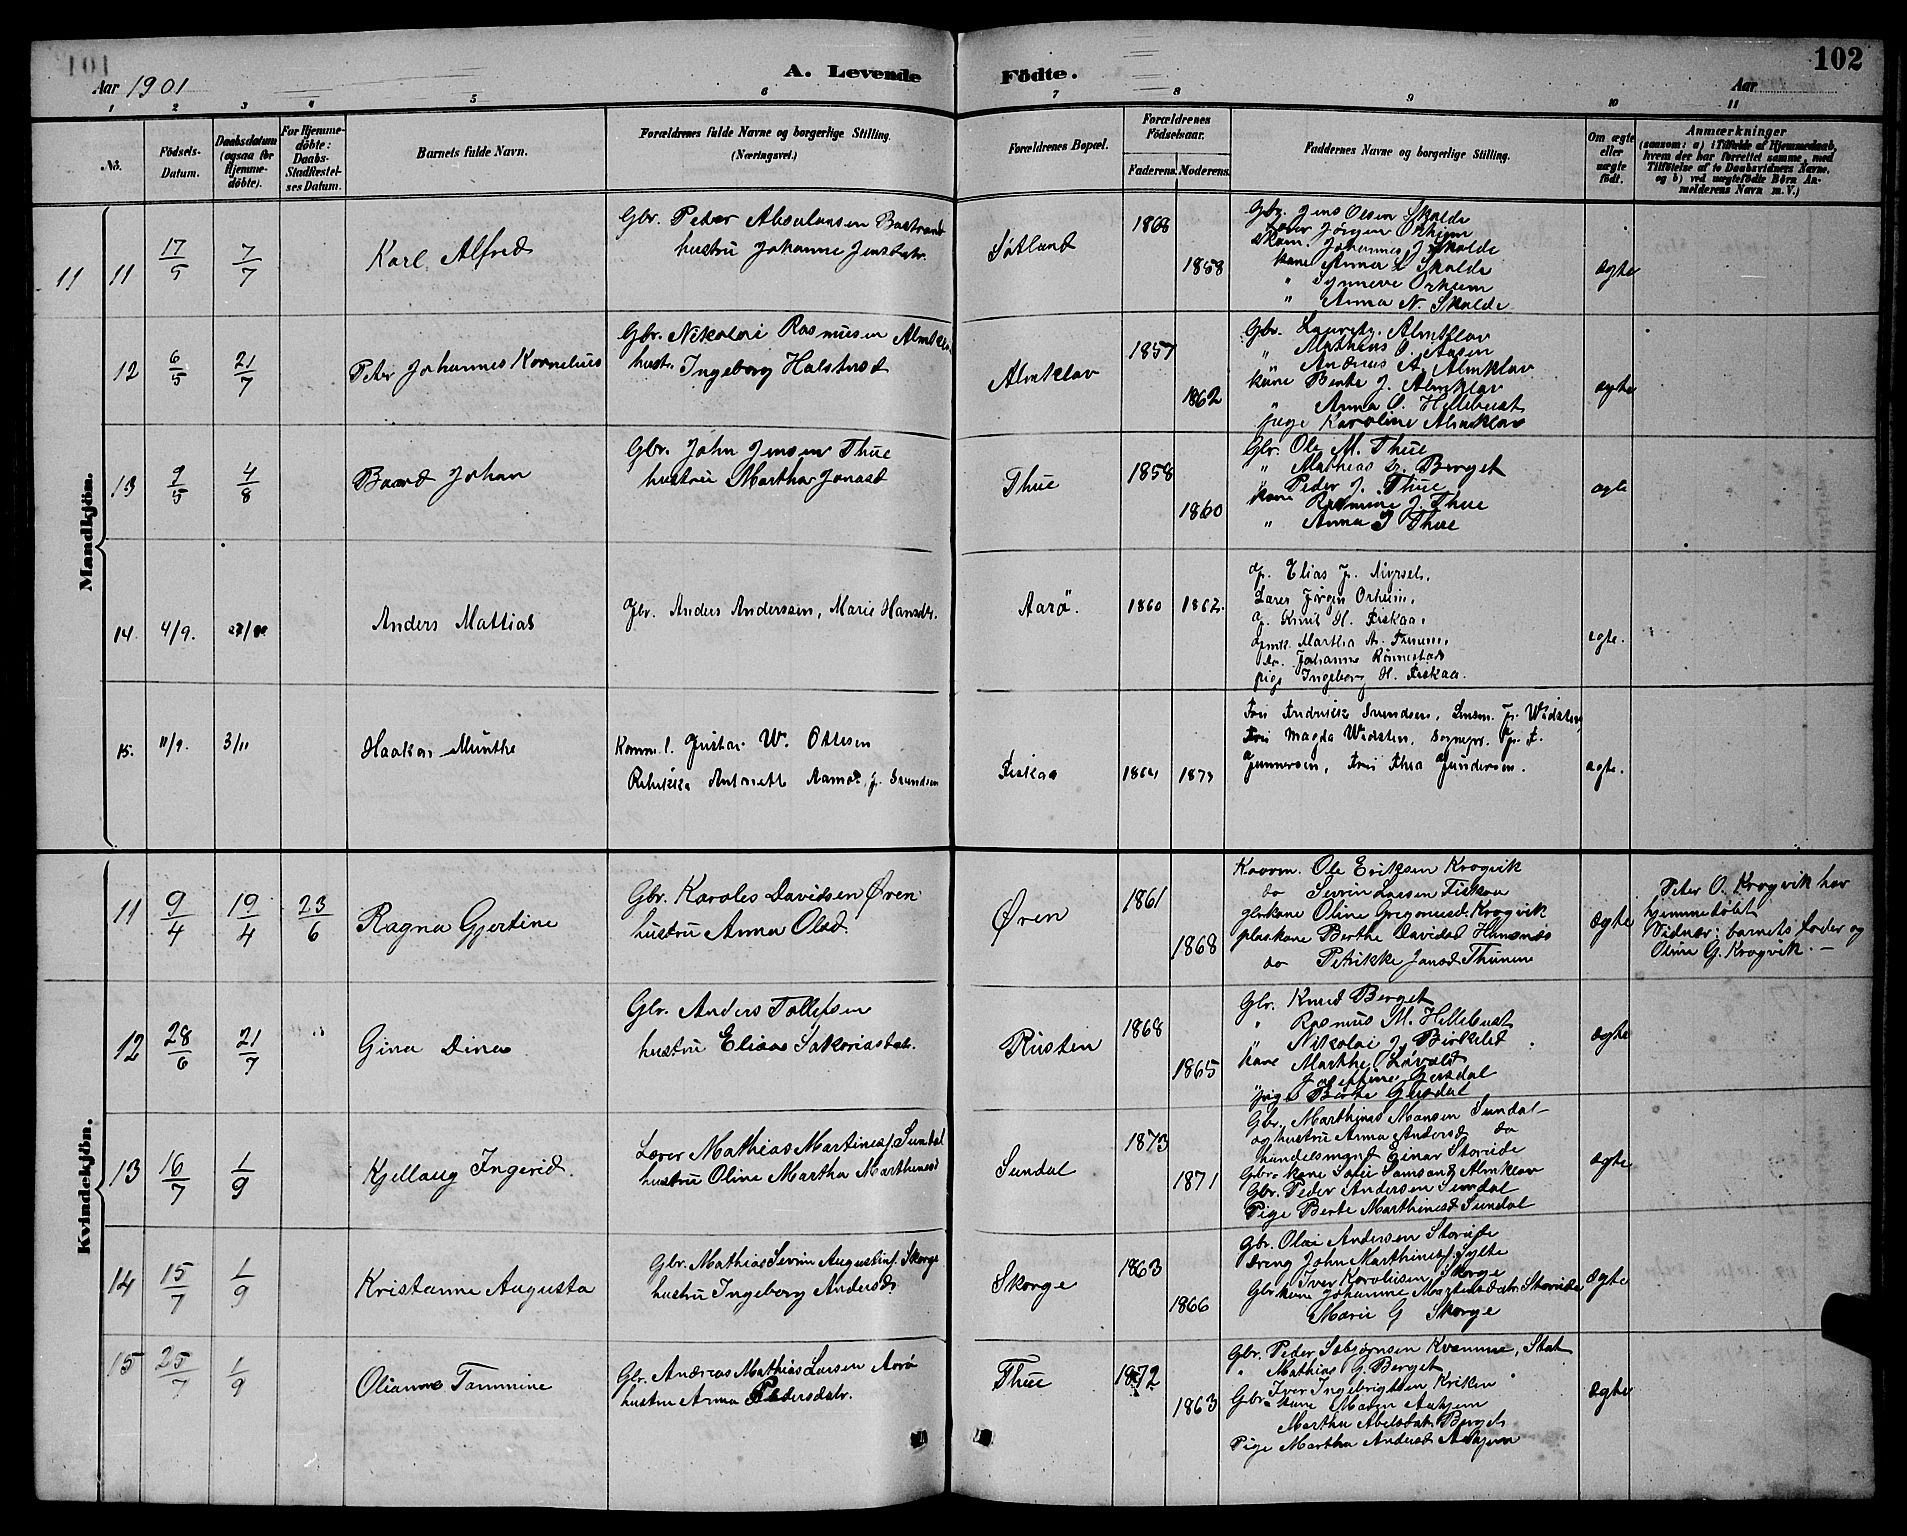 101
102
Aar 1901
A. Levende Födte.
Aar
1 2 3 4 5 6 7 8 9 10 11
No.
Födsels-Datum.
Daabsdatum (ogsaa for Hjemmedöbte).
For Hjemmedöbte: Daabs-Stadfæstelses Datum.
Barnets fulde Navn.
Forældrenes fulde Navne og borgerlige Stilling. (Næringsvei.)
Forældrenes Bopæl.
Forældrenes Födselsaar.
Faderens. Moderens.
Faddernes Navne og borgerlige Stilling.
Om ægte eller uægte födt.
Anmærkninger
(saasom: a) i Tilfælde af Hjemmedaab,
hvem der har forrettet samme, med
Tilföielse af to Daabsvidners Navne,
og b) ved uægtefödte Börn Anmelderens Navn m. V.)
Mandkjön.
11 11 17/5 7/7 Karl Alfred
Gbr. Peter Absalonsen Bastrand
hustru Johanne Jensdatr.
Søtland 1868 1858
Gbr. Jens Olsen Skolde
Lærer Jörgen Orheim
Skom. Johannes J. Skolde
kone Anna L Skolde
" Synneve Orheim
" Anna N. Skolde
ægte
12 6/5 21/7 Peter Johannes Kornelius
Gbr. Nikolai Rasmusen Almklov
hustr. Ingeborg Halstensd
Almklov 1857 1862
Gbr. Almklov
" Mathias O. Aasen
" Andreas A. Almklov
kone Berte J. Almklov
" Anna O. Hellebust
pige Karoline Almklov
ægte
13 9/5 4/8 Baard Johan
Gbr. John Jensen Thue
hustru Martha Jonasd
Thue 1858 1860
Gbr. Ole M. Thue
" Mathias G. Berget
" Peder J. Thue
kone Rasmine J. Thue
" Anna J Thue
ægte
14. 4/9. Anders Mattias
Gbr. Anders Anderssen, Marie Hansdr.
Aarö. 1860 1862.
Elias
Lærer Jörgen Orheim,
Knut H. Fiskaa,
Martha A. Thunem,
Johanne Rönnestad
pige Ingeborg H. Fiskaa.
ægte.
15. 11/9. 3/11 Haakon Munthe
Gustav W. Ottesen
Rebekka Antonette Aamot, f. Svendsen
Fiskaa 1864 1873
Frk Fredrikke Svendsen, Lensm. Wadsten,
Fru Magda Wadsten, Sognepr.
Gunnersen, Fru Thea Gundersen.
ægte.
Kvindekjön.
11 9/4 19/4 23/6 Ragna Gjertine
Gbr. Karoles Davidsen Øren
hustru Anna Olsd.
Øren 1861 1868
Kaarm. Ole Eriksen Krogvik
do Severin Larsen Fiskaa
gbrkone Oline Gregoriusd. Krogvik
plaskone Berthe Davidsd Hansnæs
do Petrikke Jansd Thunem
ægte
Peter O. Krogvik har
hjemmedøbt
Vidner: barnets fader og
Oline G. Krogvik. —
12 28/6 21/7 Gina Dina
Gbr. Anders Tollefsen
hustru Elias Sakariasdatr.
Rusten 1868 1865
Gbr. Knud Berget
" Rasmus M. Hellebust
" Nikolai J. Birkelid
kone Marthe Løvold
" Josefine Gjersdal
pige Berte Gjersdal
ægte
13 16/7 1/9 Kjellaug Ingerid
Lærer Mathias Martines. Sundal
hustru Oline Martha Marthinusd
Sundal 1873 1871
Gbr. Marthines Monsen Sundal
og hustru Anna Andersd do
handelsmand Einar Storeide
Gbr. kone Sofie Samsond Almklov
Gbr. Peder Andersen Sundal
Pige Berte Marthinusd Sundal
ægte
14 15/7 1/9 Kristanne Augusta
Gbr. Mathias Sivrin Augustinf. Skorge
hustru Ingeborg Andersd
Skorge 1863 1866
Gbr. Olai Andersen Storeide
dreng John Marthines. Sylte
Gbr. Iver Karolusen Skorge
kone Johanne Mortensdatr Storeide
Marie G Skorge
ægte
15 25/7 1/9 Olianne Tammine
Gbr. Andreas Mathias Larsen Aarø
hustru Anna Pedersdatr.
Thue 1872 1863
Gbr. Peder Sebjørnsen Kvamme, Stat
" Mathias G. Berget
Gbr. Iver Ingebrigtsen Kriken
kone Maren Aahjem
Martha Abelsdatr Berget
Pige Martha Andersd Aahjem
ægte